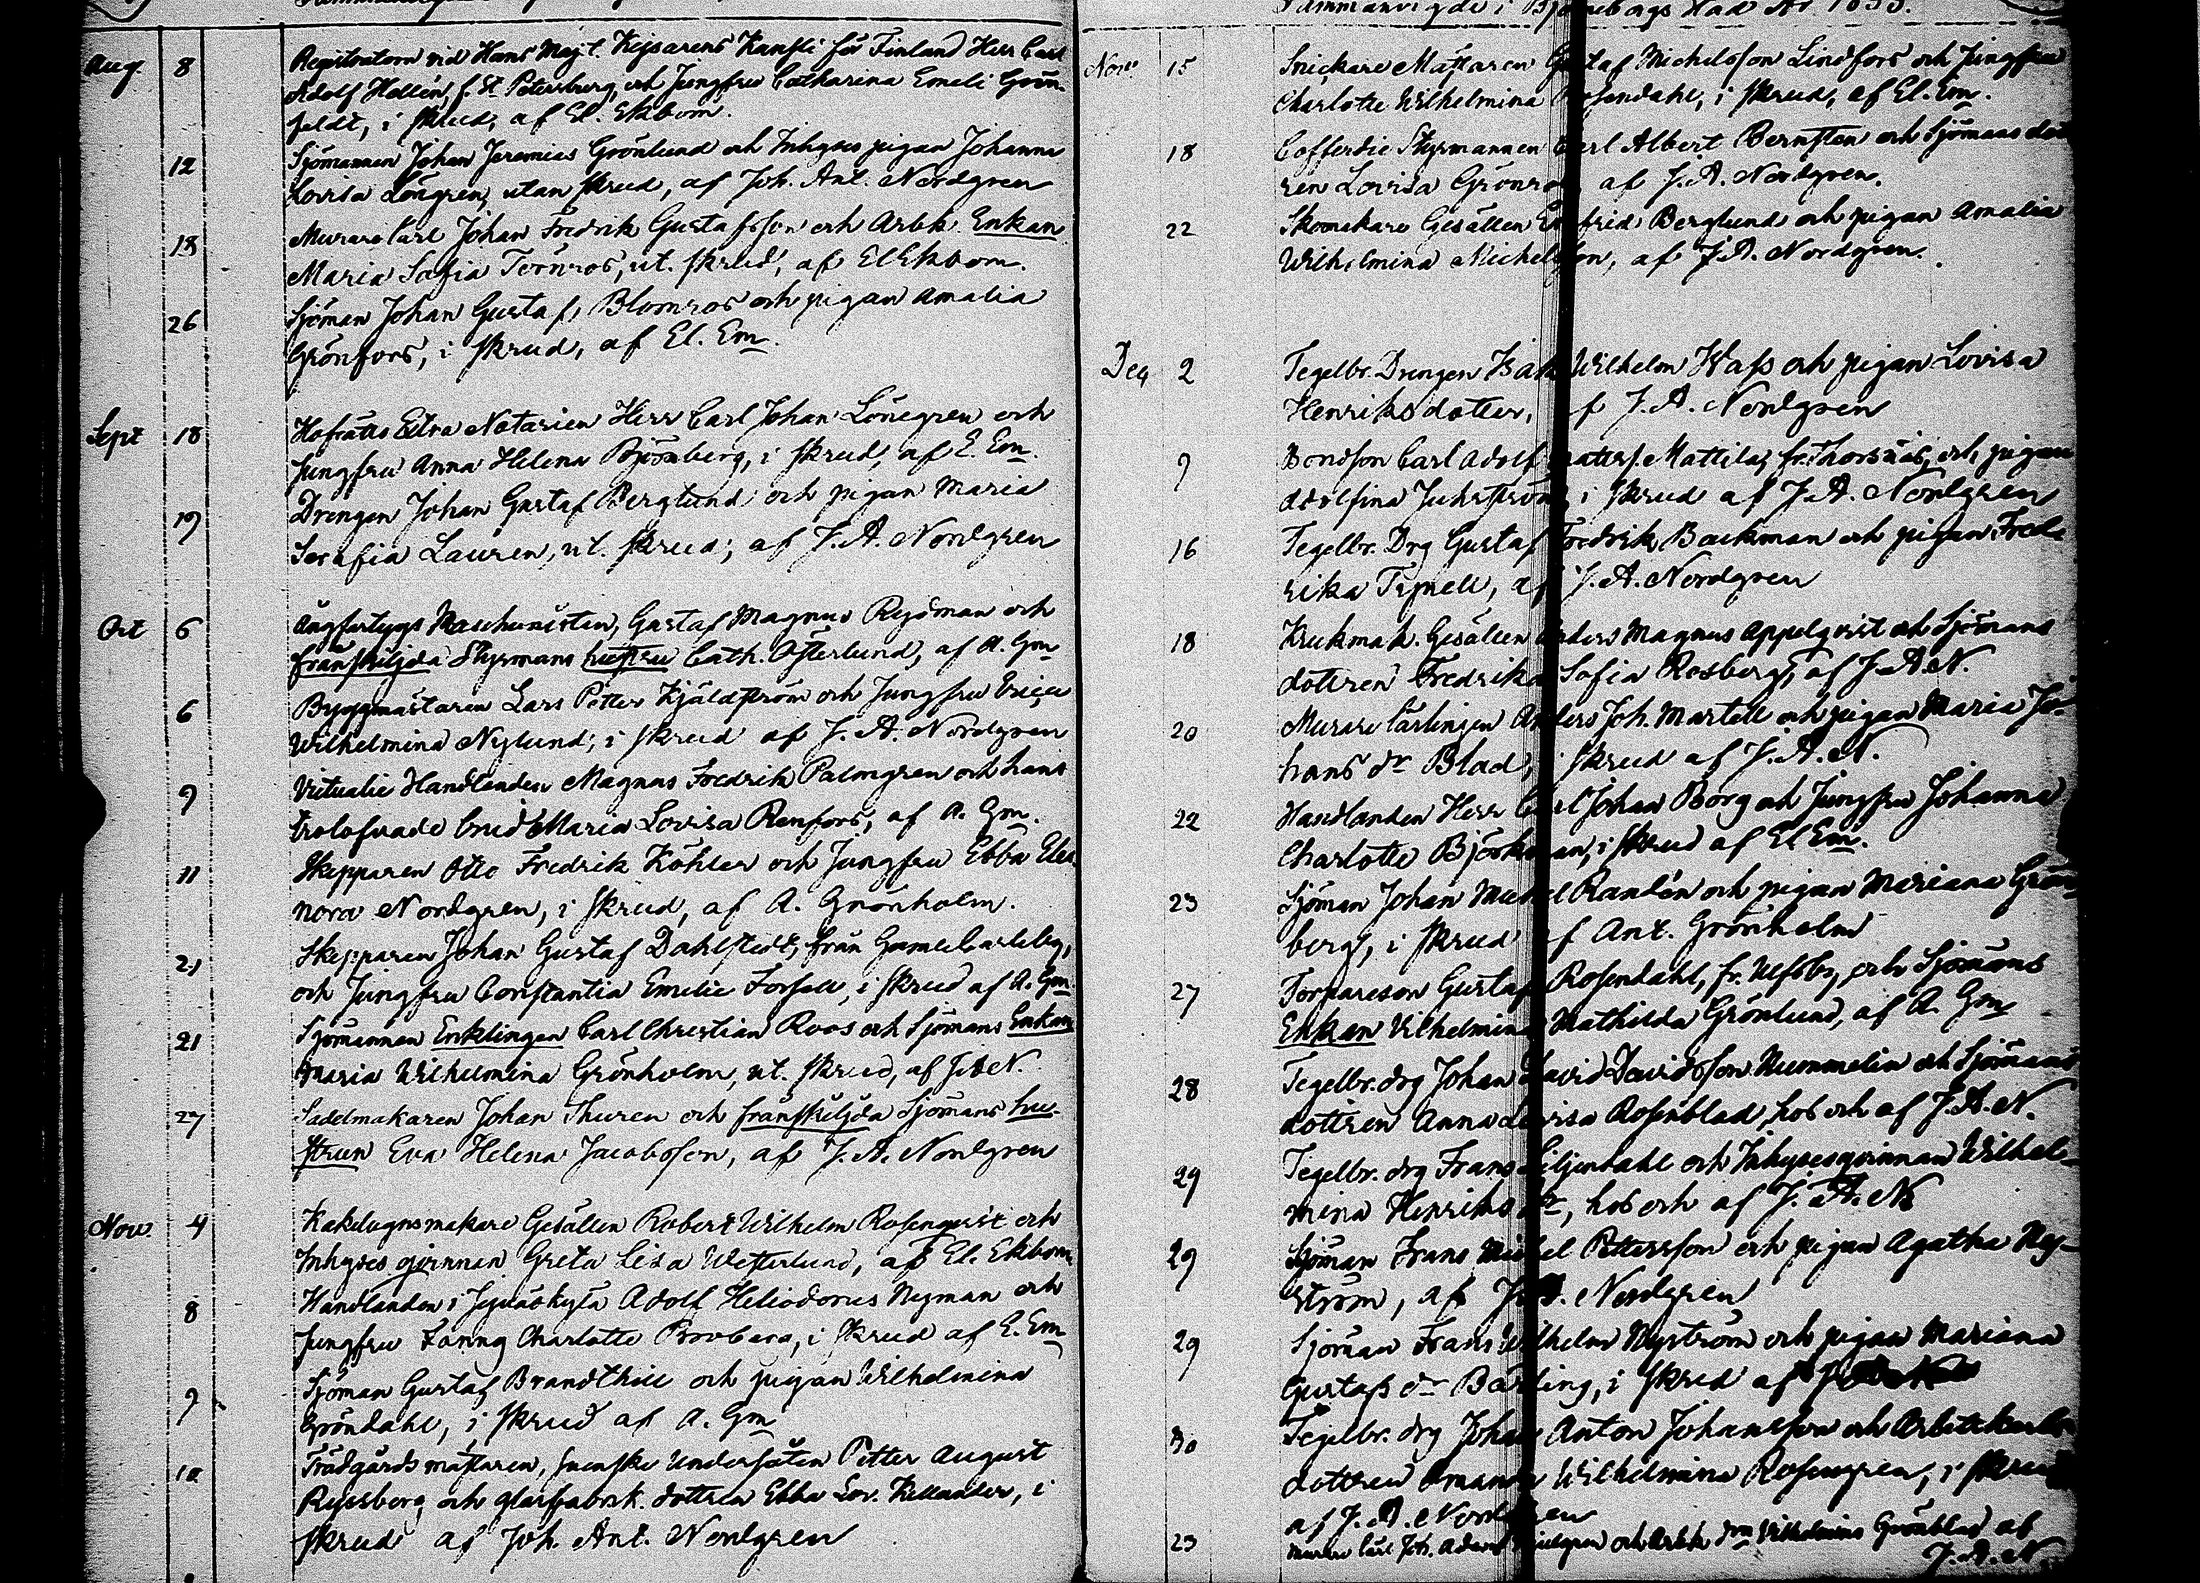 Aug. 8 Registratorn vid Hans Majt. Kejsarens Kansli för Finland Herr Carl
Adolf Hellén, f. St Petersburg, och Jungfru Catharina Emeli Grön-
feldt, i skrud, af El. Ekbom.
12 Sjömannen Johan Jeremias Grönlund och Inhyses pigan Johanna
Lovisa Löngren, utan skrud, af Joh. Ant. Nordgren
18 Murare Carl Johan Fredrik Gustafsson och Arbk. Enkan
Maria Sofia Törnros, ut. skrud, af El Ekbom.
26 Sjöman Johan Gustaf Blomros och pigan Amalia
Grönfors, i skrud, af El. Em.
Sept 18 Hofrätts Extra Notarien Herr Carl Johan Lönegren och
Jungfru Anna Helena Björnberg, i skrud, af E. Em.
19 Drengen Johan Gustaf Berglund och pigan Maria
Serafia Lauren, ut. skrud; af J. A. Nordgren
Oct 6 Ångfartygs Maschinisten, Gustaf Magnus Rydman och
frånskiljda Styrmans hustru Cath. Österlund, af A. Gm
6 Byggmästaren Lars Petter Kjäldström och Jungfru Erica
Wilhelmina Nylund, i skrud af J. A. Nordgren
9 Victualie Handlanden Magnus Fredrik Palmgren och hans
trolofvade brud Maria Lovisa Renfors, af A. Gm.
11 Skepparen Otto Fredrik Köhler och Jungfru Ebba Eleo
nora Nordgren, i skrud, af A. Grönholm.
21 Skepparen Johan Gustaf Dahlstedt, från Gamlacarleby,
och Jungfru Constantia Emelie Forsell, i skrud af A. Gm.
21 Sjömannen Enklingen Carl Christian Roos och Sjömans Enkan
Maria Wilhelmina Grönholm, ut. skrud, af J A N.
27 Sadelmakaren Johan Thuren och frånskiljda Sjömans hu-
strun Eva Helena Jacobsson, af J. A. Nordgren
Nov. 4 Kakelugnsmakare Gesällen Robert Wilhelm Rosenqvist och
Inhyses qvinnan Greta Lisa Westerlund, af El. Ekbom
8 Handlanden i Jyväskylä Adolf Heliodorus Nyman och
Jungfru Fanny Charlotte Broberg, i skrud af E. Em
9 Sjöman Gustaf Brandthill och pigan Wilhelmina
Gröndahl, i skrud af A. Gm
10 Trädgårds mästaren, svenske undersåten Petter August
Ryssberg och glasfabrik. dottren Ebba Lov. Killander, i
skrud af Joh. Ant. Nordgren
Sammanvigde i Björneborgs stad År 1855.
Nov. 15 Snickare Mästaren Gustaf Michelsson Lindfors och Jungfru
Charlotte Wilhelmina Rosendahl, i skrud, af El. Em.
18 Cofferdie Styrmannen Carl Albert Bernsten och Sjömans dott
ren Lovisa Grönroos af J. A. Nordgren.
22 Skomakare Gesällen Enfrid Berglund och pigan Amalia
Wilhelmina Michelsson, af J. A. Nordgren.
Dec 2 Tegelbr. Drengen Isak Wilhelm Wass och pigan Lovisa
Henriksdotter, af J. A. Nordgren
9 Bondson Carl Adolf Mattsf. Mattila, fr. Thorsnäs, och pigan
Adolfina Juhrström i skrud af J. A. Nordgren
16 Tegelbr. Drg Gustaf Fredrik Backman och pigan Fred-
rika Tejnell, af J. A. Nordgren
18 Krukmak. Gesällen Anders Magnus Appelqvist och Sjömans
dottren Fredrika Sofia Rosberg, af J. A. N.
20 Murare lärlingen Anders Joh. Martell och pigan Maria Jo-
hans dr Blad, i skrud af J. A. N.
22 Handlanden Herr Carl Johan Borg och Jungfru Johanna
Charlotte Björkman, i skrud af El Em.
23 Sjöman Johan Mickel Randén och pigan Mariana Grön-
berg, i skrud af Ant. Grönholm
27 Torpareson Gustaf Rosendahl, fr. Ulfsby, och Sjömans
Enkan Vilhelmina Mathilda Grönlund, af A. Gm
28 Tegelbr. drg Johan David Davidsson Nummelin och Sjömans
dottren Anna Lovisa Rosenblad, hos och af J. A. N.
29 Tegelbr. drg Frans Liljendahl och Inhysesqvinnan Wilhel-
mina Henriks dr, hos och af J. A. N
29 Sjöman Frans Mickel Pettersson och pigan Agatha Ny-
ström, af J. A. Nordgren
29 Sjöman Frans Wilhelm Nyström och pigan Mariana
Gustafs dr Bärling, i skrud af
30 Tegelbr. drg Johan Anton Johansson och Arbetskarls
dottren Amanda Wilhelmina Rosengren, i skrud
af J. A. Nordgren
23 Murare lärl Joh. Adam och Arbk drn Vilhelmina Grönblad af
J. A. N.